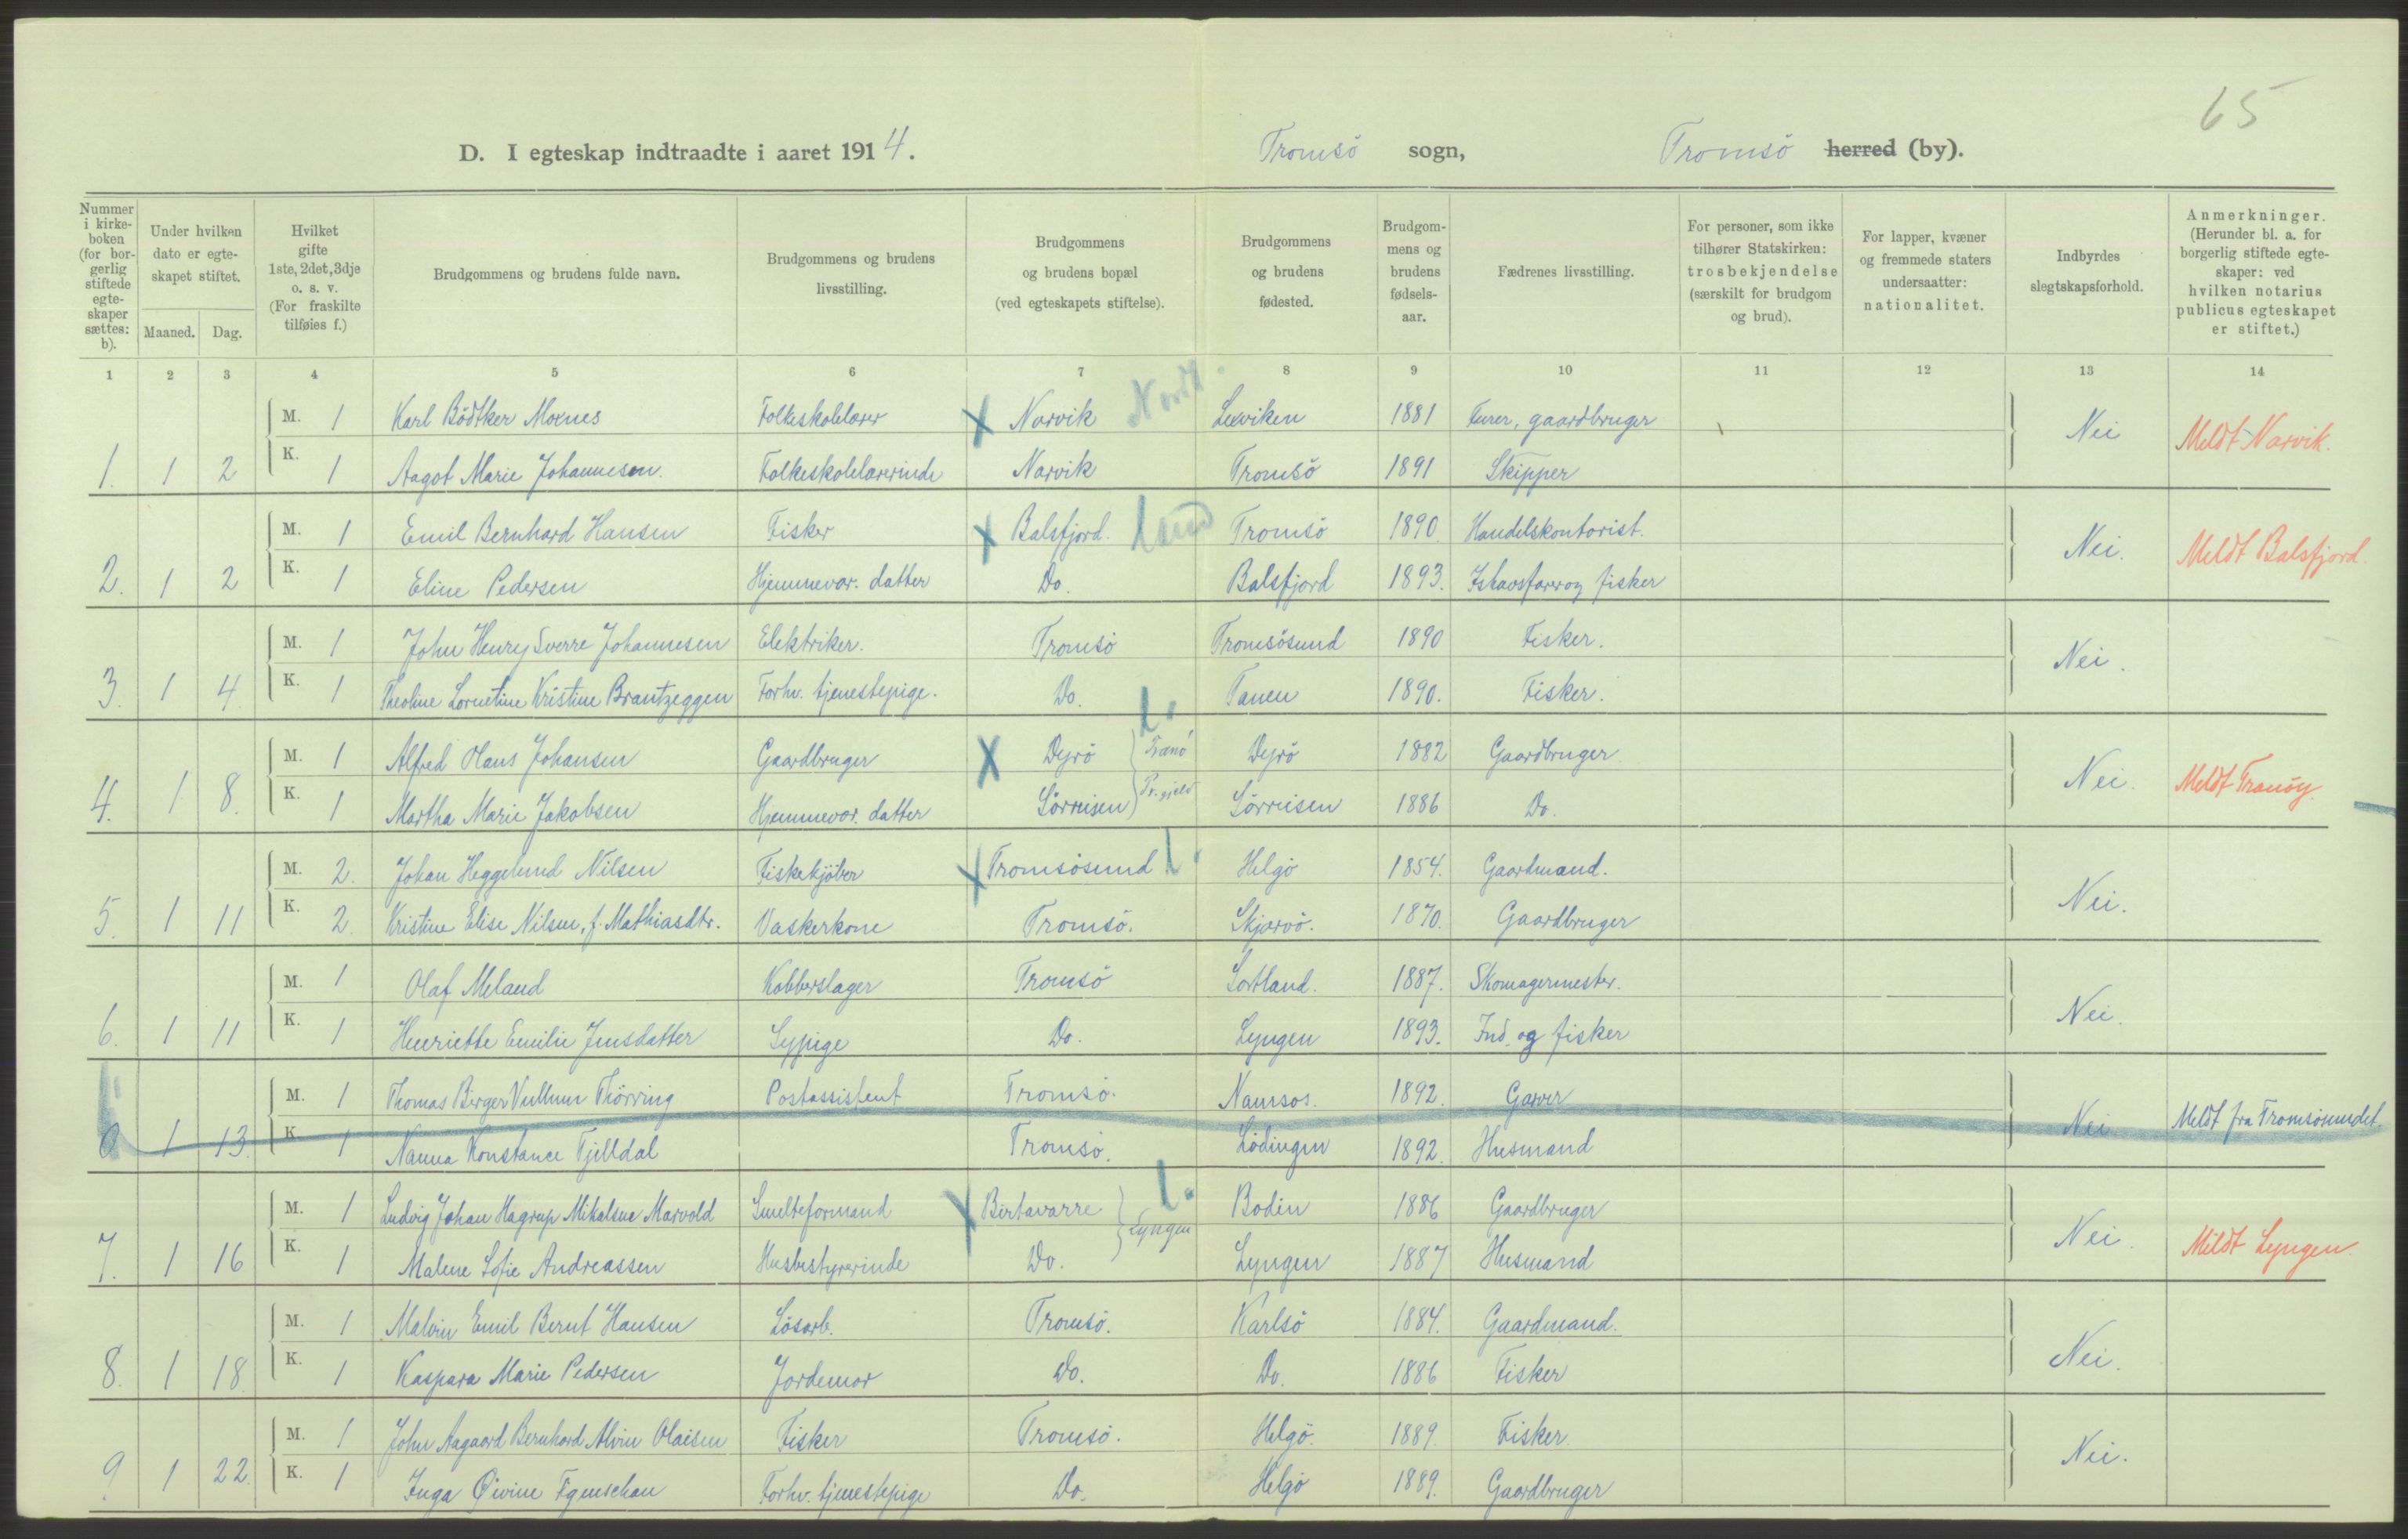 65
D. I egteskap indtraadte i aaret 1914. Tromsö sogn, Tromsö herred (by).
Nummer i kirke-boken (for bor-gerlig stiftede egte-skaper sættes: b).
Under hvilken dato er egte-skapet stiftet.
Maaned. Dag.
Hvilket gifte 1ste, 2det, 3dje o. s. v. (For fraskilte tilføies f.)
Brudgommens og brudens fulde navn.
Brudgommens og brudens livsstilling.
Brudgommens og brudens bopæl (ved egteskapets stiftelse).
Brudgommens og brudens fødested.
Brudgom-mens og brudens fødsels-aar.
Fædrenes livsstilling.
For personer, som ikke tilhører Statskirken: trosbekjendelse (særskilt for brudgom og brud).
For lapper, kvæner og fremmede staters undersaatter: nationalitet.
Indbyrdes slegtskapsforhold.
Anmerkninger. (Herunder bl. a. for borgerlig stiftede egte-skaper: ved hvilken notarius publicus egteskapet er stiftet.)
1 2 3 4 5 6 7 8 9 10 11 12 13 14
M. 1 Karl Bödtker Moenes Folkeskolelærer X Narvik Lexviken 1881 Furer, gaardbruger
1. 1 2 K. 1 Aagot Marie Johannesen. Folkeskolelærerinde Narvik Tromsö 1891 Skipper Nei Meldt Narvik.
M. 1 Emil Bernhard Hansen Fisker X Balsfjord. Land Tromsö 1890. Handelskontorist.
2. 1 2 K. 1 Eline Pedersen Hjemmevær. datter Do. Balsfjord 1893. Ishavsfarer og fisker Nei. Meldt Balsfjord.
M. 1 John Henry Sverre Johannesen Elektriker. Tromsö Tromsösund 1890 Fisker.
3. 1 4. K. 1 Theoline Lornetine Kristine Brantzeggen Forhv. tjenestepige. Do. Tanen 1890. Fisker. Nei.
M. 1 Alfred Olaus Johansen Gaardbruger X Dyrö Tranö Dyrö 1882 Gaardbruger
4. 1 8. K. 1 Martha Marie Jakobsen Hjemmevær. datter Sörreisen Pr.gjeld Sörreisen 1886 Do. Nei. Meldt Tranöy.
M. 2. Johan Heggelund Nilsen Fiskekjöber X Tromsösund L. Helgö 1854. Gaardmand.
5. 1 11 K. 2. Kristine Elise Nilsen, f. Mathiasdtr. Vaskerkone Tromsö. Skjærvö. 1870. Gaardbruger Nei.
M. 1 Olaf Meland Kobberslager Tromsö Sortland. 1887. Skomagermester.
6. 1 11 K. 1 Henriette Emilie Jensdatter Sypige Do. Lyngen 1893. Ind. og fisker Nei.
M. 1 Thomas Birger Vullum Thörring Postassistent Tromsö. Namsos. 1892. Garver
1 13. K. 1 Nanna Konstance Fjelldal Tromsö. Lödingen 1892. Husmand Nei Meldt fra Tromsösundet
M. 1 Ludvig Johan Hagrup Mikalsen Marvold Smelteformand X Birtavarre Lyngen L. Bodin 1886 Gaardbruger
7. 1 16 K. 1 Malene Sofie Andreassen Husbestyrerinde Do. Lyngen 1887 Husmand Nei. Meldt Lyngen.
M. 1 Malvin Emil Bernt Hansen Lösarb. Tromsö. Karlsö 1884. Gaardmand.
8. 1 18 K. 1 Kaspara Marie Pedersen Jordemor Do. Do. 1886 Fisker Nei.
M. 1 John Aagaard Bernhard Alvin Olaisen Fisker Tromsö. Helgö. 1889. Fisker.
9. 1 22. K. 1 Inga Öivine Figenschau Forhv. tjenestepige Do. Helgö 1889. Gaardbruger Nei.